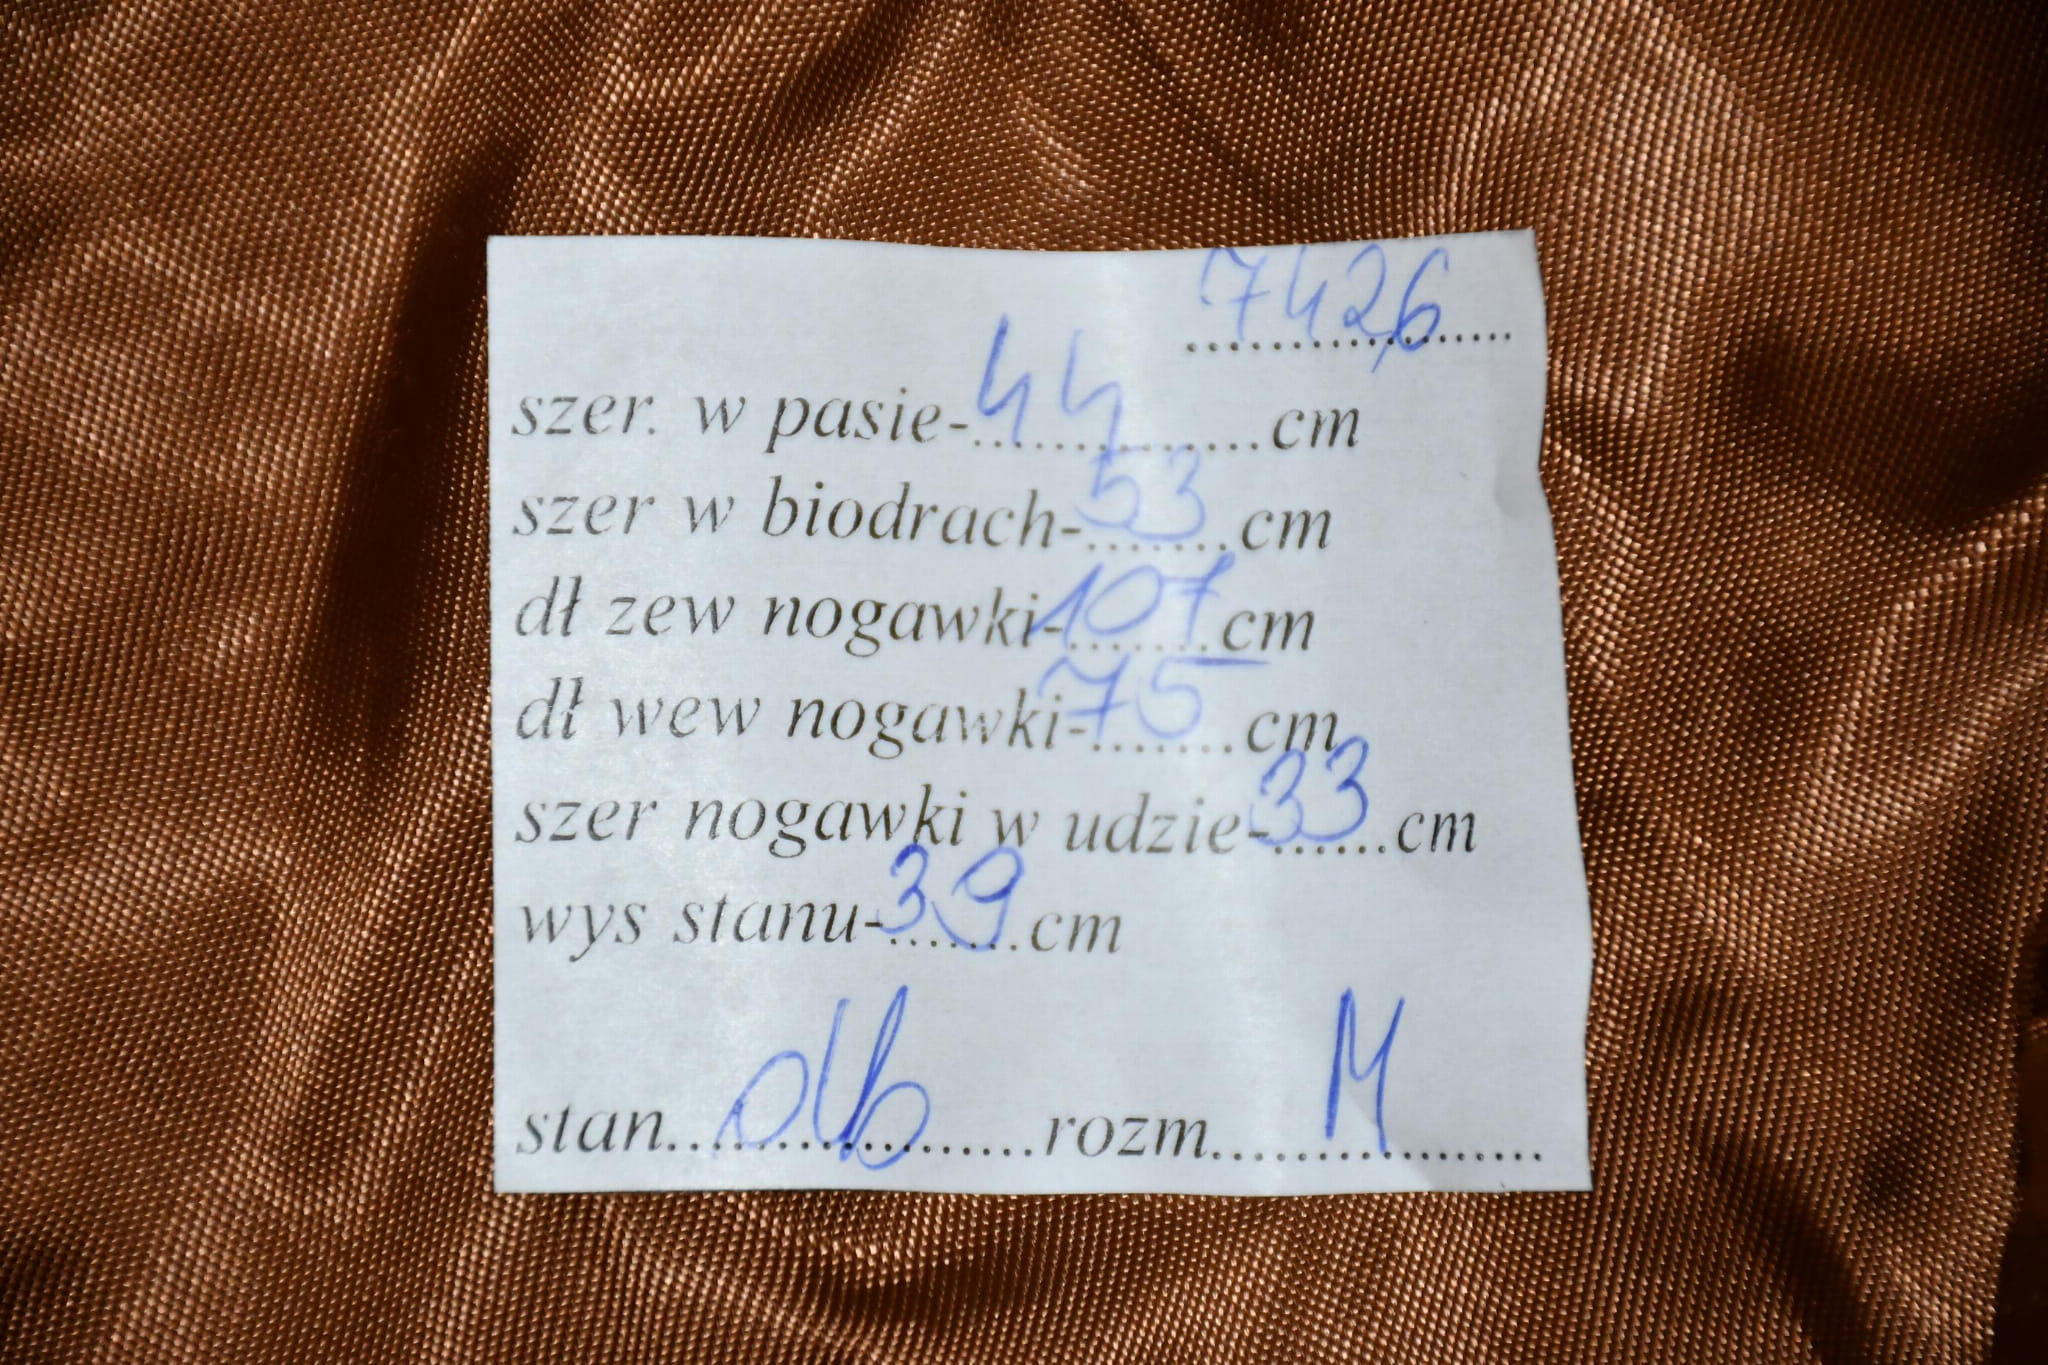 7426
szer. w pasie-44 cm
szer w biodrach-53 cm
dł zew nogawki-107 cm
dł wew nogawki-75 cm
szer nogawki w udzie-33 cm
wys stanu-39 cm
stan db rozm M